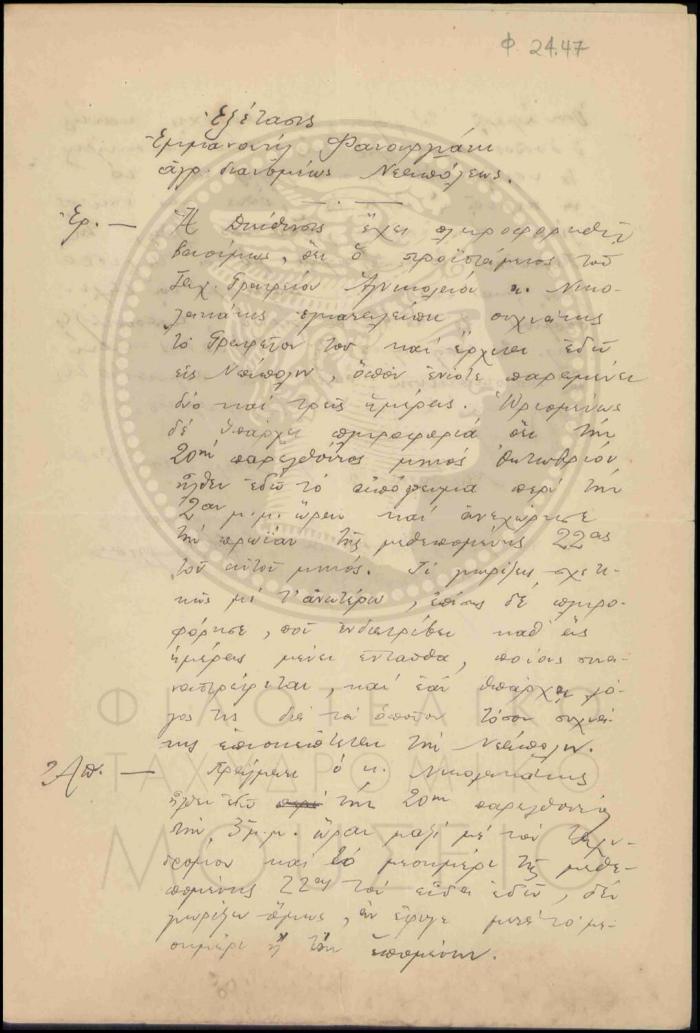 Φ 24.47
Ἐξέτασις
Ἐμμανουὴλ
ἀγρ. διανομέως Νεαπόλεως.
Ἐρ. — Ἡ Διεύθυνσις ἔχει πληροφορηθῆ
βασίμως, ὅτι ὁ προϊστάμενος τοῦ
Ταχ. Γραφείου Ἁγ. Νικολάου κ. Νικο-
λακάκης ἐγκαταλείπει συχνάκις
τὸ Γραφεῖον του καὶ ἔρχεται ἐδῶ
εἰς Νεάπολιν, ὅπου ἐνίοτε παραμένει
δύο καὶ τρεῖς ἡμέρας. Ὡρισμένως
δὲ ὑπάρχει πληροφορία ὅτι τὴν
20ην παρελθόντος μηνὸς Ὀκτωβρίου
ἦλθεν ἐδῶ τὸ ἀπόγευμα περὶ τὴν
2αν μ.μ. ὥραν καὶ ἀνεχώρησε
τὴν πρωΐαν τῆς μεθεπομένης 22ας
τοῦ αὐτοῦ μηνός. Τί γνωρίζεις σχετι-
κῶς μὲ τ' ἀνωτέρω, ἐπίσης δὲ πληρο-
φόρησε, ποῦ ἐνδιατρίβει καθ' ἃς
ἡμέρας μένει ἐνταῦθα, ποίους συνα-
ναστρέφεται, καὶ ἐὰν ὑπάρχῃ λό-
γος τις διὰ τὸν ὁποῖον τόσον συχνά-
κις ἐπισκέπτεται τὴν Νεάπολιν.
Ἀπ. — Πράγματι ὁ κ. Νικολακάκης
ἦλθεν ἐδῶ περὶ τὴν 20ην παρελθόντος
τὴν 3 μ.μ. ὥραν μαζὶ μὲ τὸν ταχυ-
δρόμον καὶ τὸ μεσημέρι τῆς μεθε-
πομένης 22ας τὸν εἶδα ἐδῶ, δὲν
γνωρίζω ὅμως, ἂν ἔφυγε μετὰ τὸ με-
σημέρι ἢ τὴν ἑπομένην.
ΦΙΛΟΤΕΛΙΚΟ
ΤΑΧΥΔΡΟΜΙΚΟ
ΜΟΥΣΕΙΟ